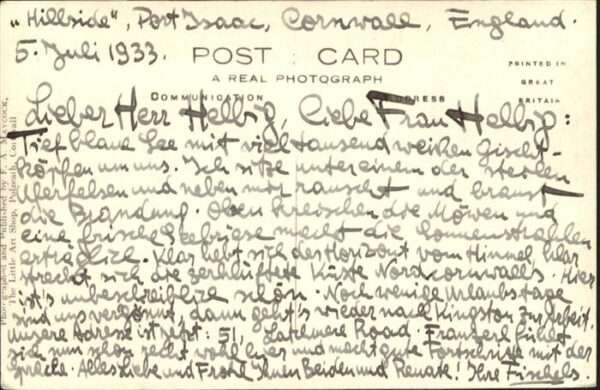 "Hillside", Port Isaac, Cornwall, England.
5. Juli 1933.
POST CARD
PRINTED IN
GREAT
BRITAIN
A REAL PHOTOGRAPH
COMMUNICATION
ADDRESS
Lieber Herr Helbig, liebe Frau Helbig:
Tief blaue See mit vieltausend weißen Gischt-
köpfen um uns. Ich sitze unter einem der steilen
Uferfelsen und neben mir rauscht und braust
die Brandung. Oben kreischen die Möwen und
eine frische Seebrise macht die Sonnenstrahlen
erträglich. Klar hebt sich der Horizont vom Himmel, klar
streckt sich die zerklüftete Küste Nordcornwalls. Hier
ist's unbeschreiblich schön. Noch wenige Urlaubstage
sind uns vergönnt, dann geht's wieder nach Kingston zur Arbeit.
Unsere Adresse ist jetzt: 51, Latchmere Road. Franzerl fühlt
sich nun schon recht wohl hier und macht gute Fortschritte mit der
Sprache. Alles Liebe und Ihnen Beiden und Renate! Ihre
The Little Art Shop, Polzeath, Cornwall